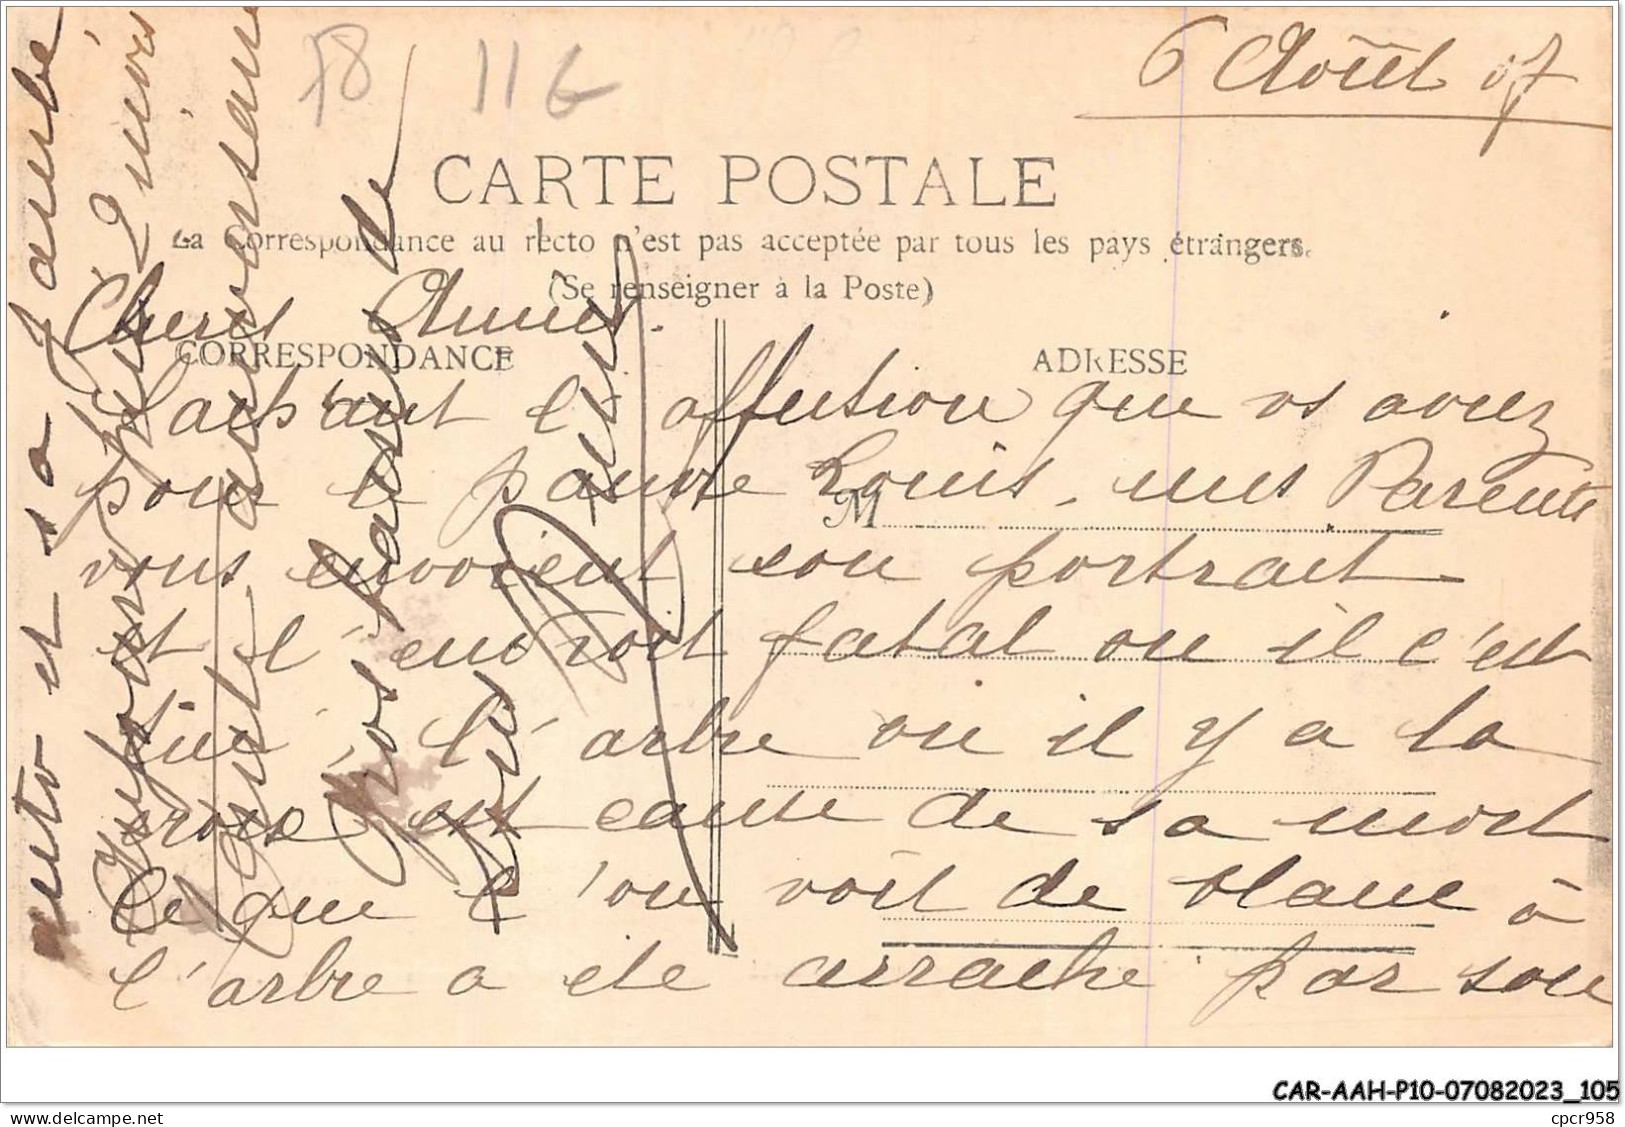 58 11 G
6 Août 07
CARTE POSTALE
La Correspondance au recto n'est pas acceptée par tous les pays étrangers.
(Se renseigner à la Poste)
Chers Amies.
CORRESPONDANCE
ADRESSE
Sachant l'affection que vs aviez
pour le pauvre Louis, mes Parents
M
vous envoient son portrait
et l'endroit fatal ou il c'est
tué, l'arbre ou il y a la
croix est cause de sa mort
Ce que l'on voit de blanc à
l'arbre a été arraché par son
auto et sa jambe
2 mois
anniversaire
de